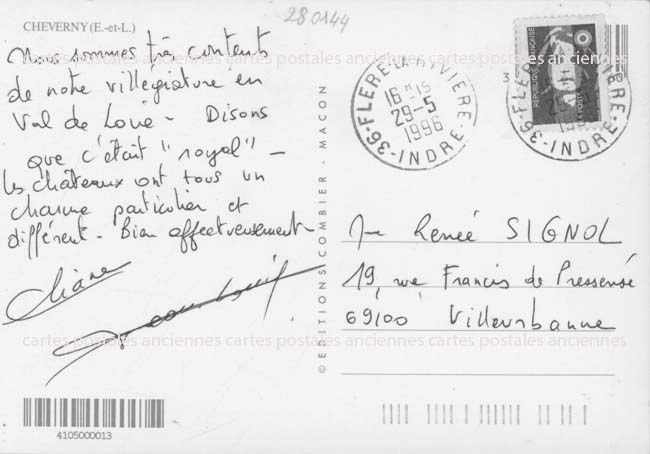 CHEVERNY (E.-et-L.)
280144
Nous sommes très contents
de notre villégiature en
Val de Loire - Disons
que c'était "royal" -
les châteaux ont tous un
charme particulier et
différent - Bien affectueusement
Eliane
cartes postales anciennes cartes postales anciennes cartes postales anciennes cartes postales anciennes
cartes postales anciennes cartes postales anciennes cartes postales anciennes cartes postales anciennes
© EDITIONS COMBIER - MACON
36-FLERE-LA-RIVIERE-INDRE
16H15
29-5
1996
REPUBLIQUE FRANÇAISE
LA POSTE
36-FLERE
INDRE
Me Renée SIGNOL
19, rue Francis de Pressensé
69100 Villeurbanne
4105000013